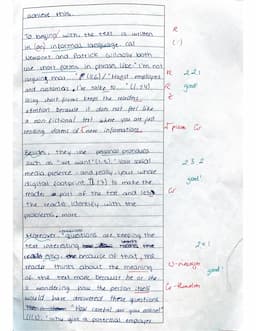 achieve this.
To begin with, the text is written
in (an) informal language. Cal
Newport and Patrick Gillooly both
use short forms in phrases like "I'm not
arguing that..." (l.26) / "Most employers
and customers I've talke to..." (l.34)
Using short forms keeps the readers
attention because it does not feel like
a non-fictional text where you are just
reading dozens of new informations.
Besides, they use personal pronouns
such as "we want" (l.5), "Your social
media presence - and really your whole
digital footprint" (l.3) to make the
reader a part of the text and lets
the reader identify with the
problems more.
Moreover, questions are keeping the
text interesting
because of that, the
reader thinks about the meaning
of the text more because he or she
is wondering how the person itself
would have answered these questions
"How careful are you asked"
(l.1), "why give a potential employer
R
(-)
R 2 2 1
R good!
Z
Gr
2 3 2
good!
Gr
2 x 1
good!